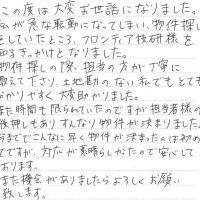 この度は大変お世話になりました。
私が急な転勤になってしまい、物件探し
をしていたところ、フロンティア技研様を
知るきっかけとなりました。
物件探しの際、担当の方が丁寧に
教えて下さり、土地勘のない私でもとても
わかりやすく大変助かりました。
また時間も限られていたのですが担当者様の
後押しもありすんなり物件が決まりました。
今までこんなに早く物件が決まったのは初め
てですが、対応が素晴らしかったので安心して
おります。
また機会がありましたらよろしくお願い
致します。